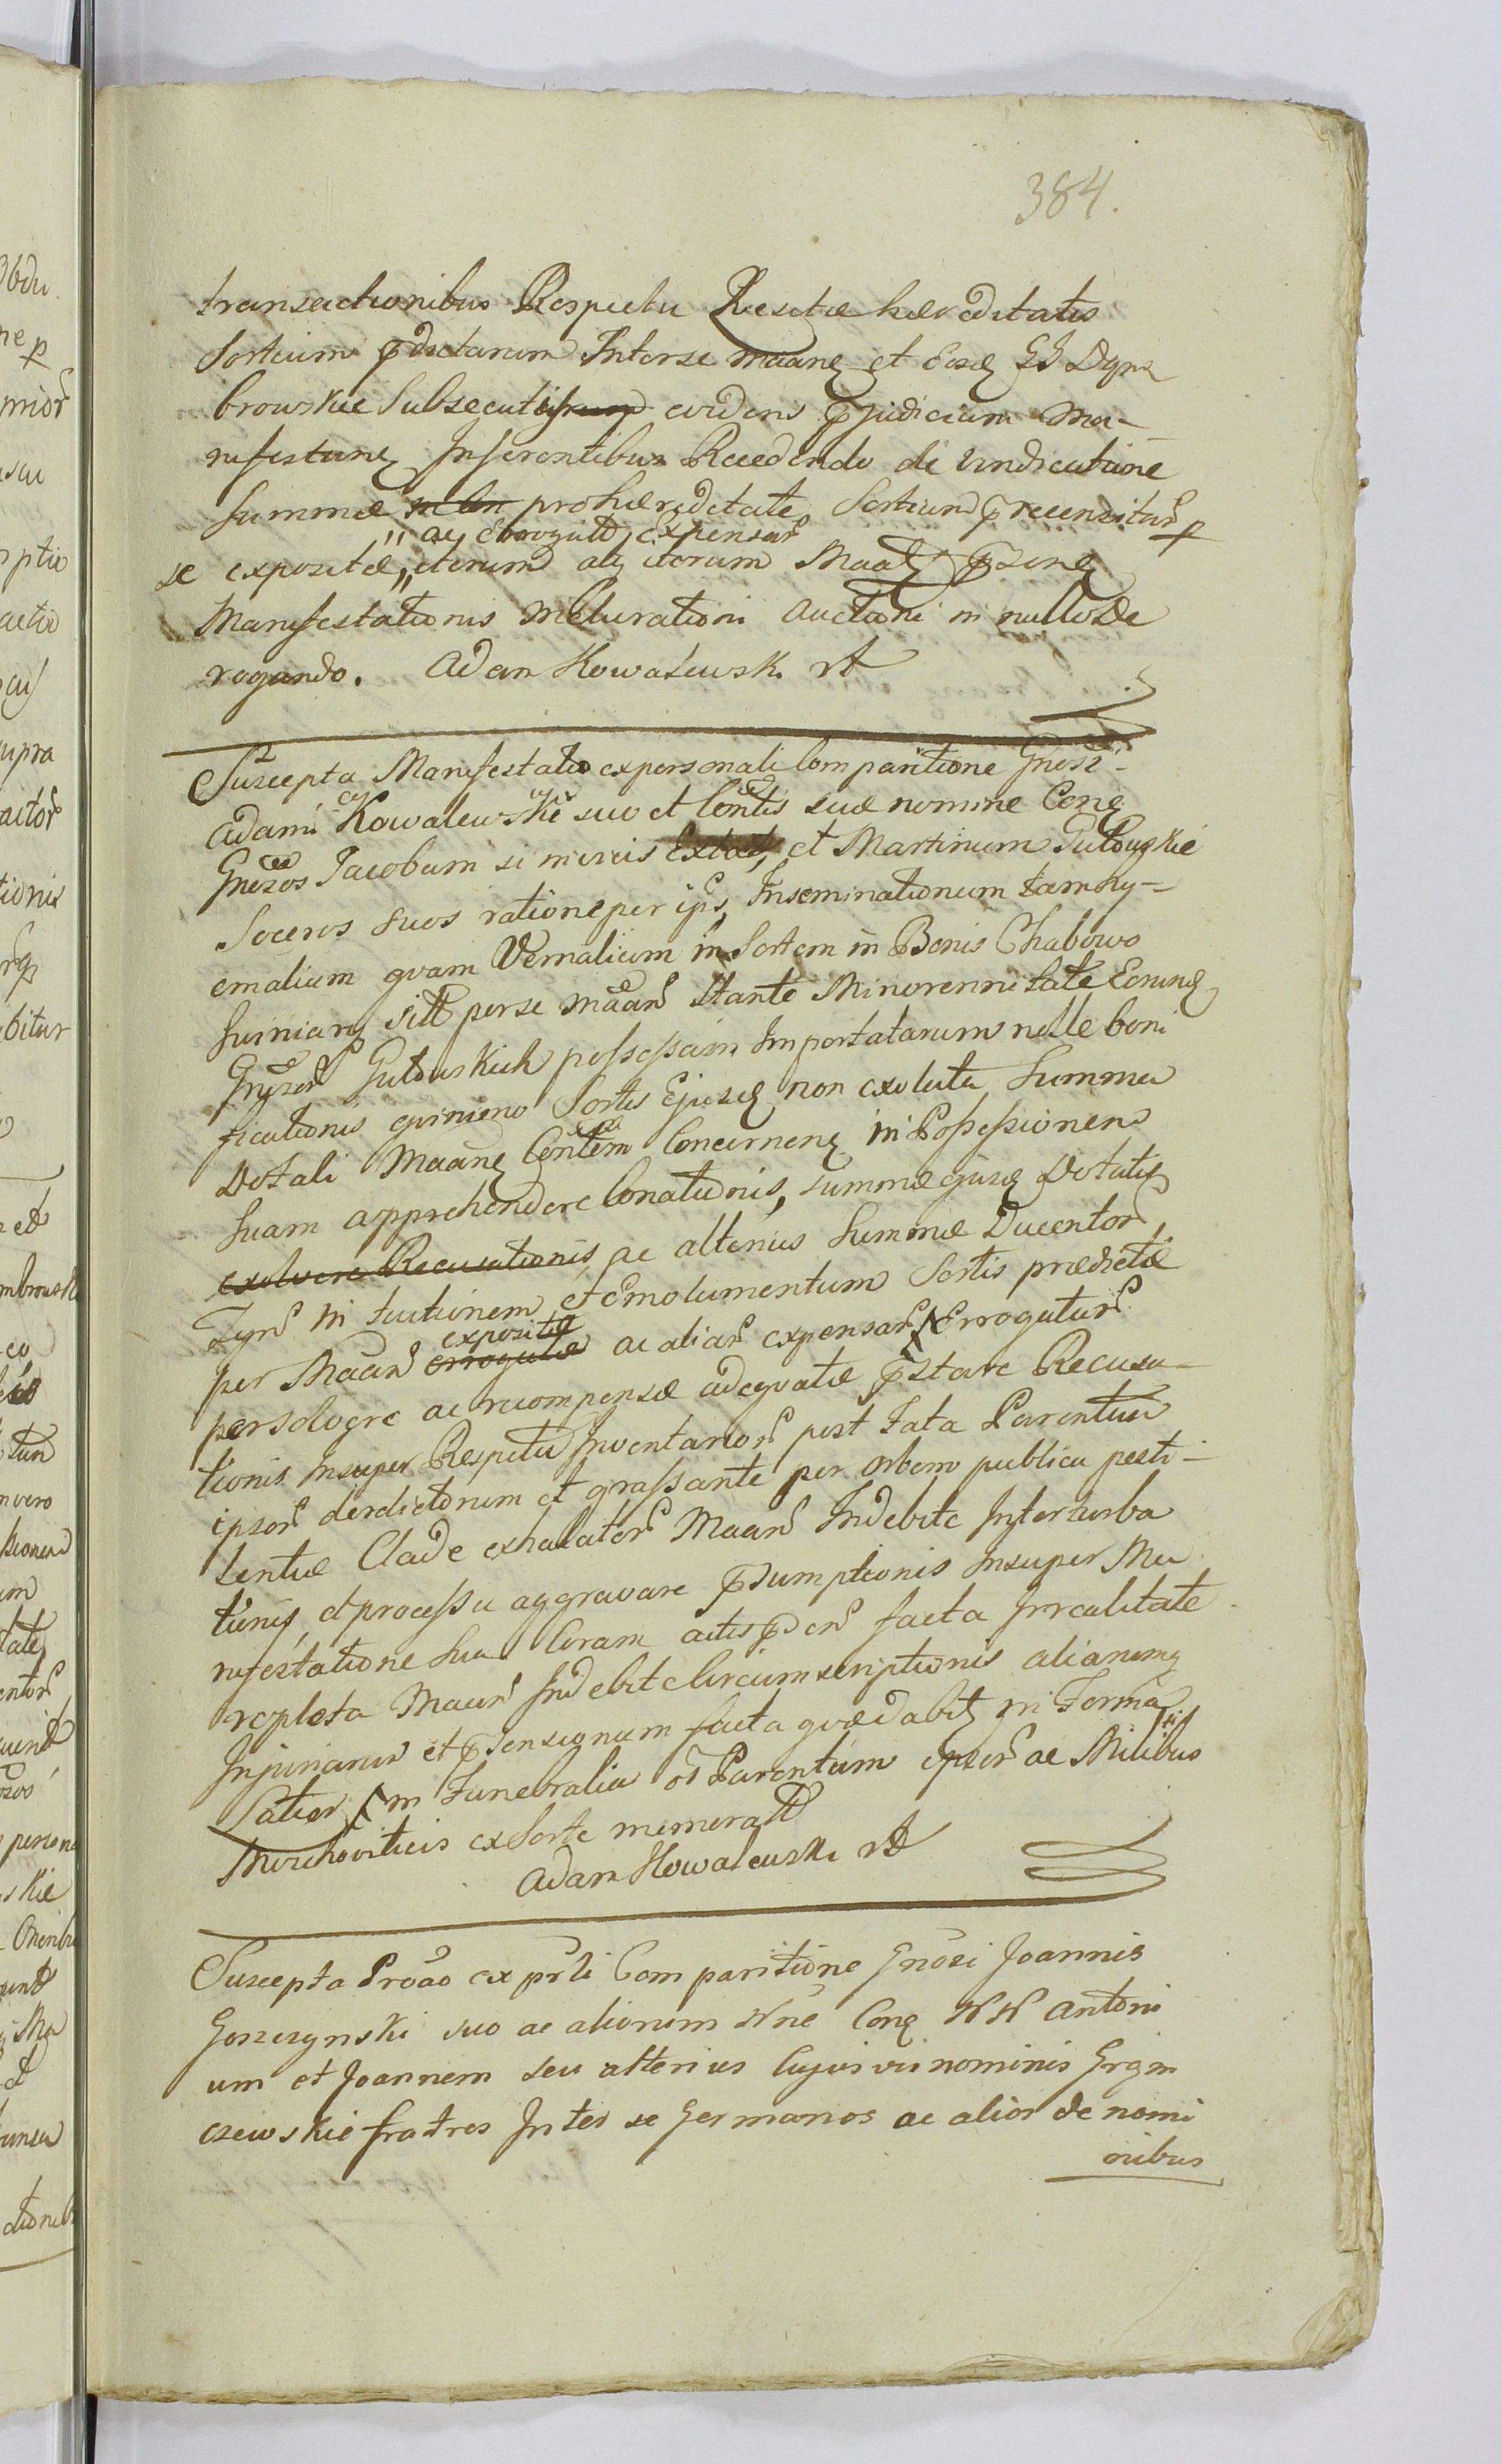 384.
transactionibus Respectu Resitæ hæreditatis
Sortium pdictarum Inter se maane et eosd GG Dąm
browskie Subsecutis evidens pjudicium Ma-
nifestane Inserentibus Recedendo de vindicatione
Summæ pro hæreditate Sortium precensitar p
ac Erogatar Expensar
se expositæ, iterum atq iterum Maatq psene
Manifestationis Melurationi auctioni in nullo de
rogando. Adam Kowalewski A
Suscepta Manifestatio ex personali Comparitione Gnosi
Adami Kowalewski suo et Contlis suæ nomine Cone
Gnosos Jacobum si in vivis Extat, et Martinum Gutowskie
Soceros suos ratione per ips, Inseminationum tam hy-
emalium qvam Vernalium in Sortem in Bonis Chabowo
Swiniary sitt per se maan Stante Minorennitate Eorund
Gnosor Gutowskich possessam Importatarum nolle boni
ficationis qvinimo Sortis Ejusd non exoluta Summa
Dotali Maane Contem Concernene in Possessionem
Suam apprehendere Conationis, summæ ejusd Dotalis
exolvere Recusationis ac alterius Summæ Ducentor
Tynf in tuitionem et Emolumentum Sortis prædictæ
per Maan errogatæ expositæ ac aliar expensar Errogatar
persolvere ac recompensæ adeqvatæ pstare Recusa-
tionis insuper Respectu Inventarior post Fata Parentum
ipsor derelictorum et grassante per orbem publica pesti-
lentiæ Clade exhalator Maan Indebite Interturba
tionis, et processu aggravare psumptionis insuper Ma
nifestatione sua Coram actis psen facta Irrealitate
repleta Maan Indebite Circumscriptionis aliarumq
Injuriarum et psensionum facta qvæ dabit in Forma
Satior in Funebralia o Parentum ipsor ac Militibus
Moschoviticis ex Sorte memoratt
Adam Kowalewski A
Suscepta Proao ex prli Comparitione Gnosi Joannis
Goszczynski suo ac aliorum Nne Cone WW Antoni
um et Joannem seu alterius Cujusvis nominis Grgm
czewskie fratres Inter se Germanos ac alior de nomi
nibus